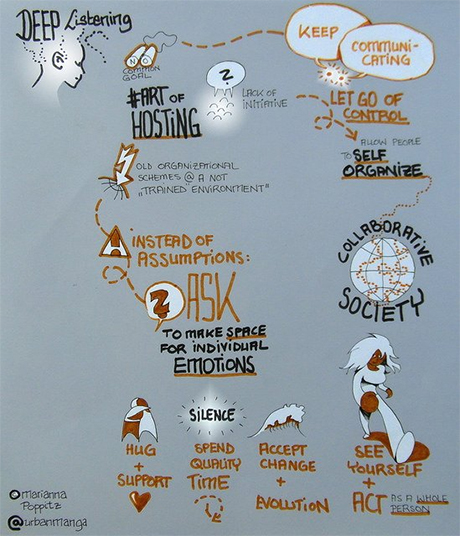 DEEP Listening
NO
COMMON
GOAL
#ART OF
HOSTING
?
LACK OF
INITIATIVE
KEEP
COMMUNI-
CATING
LET GO OF
CONTROL
ALLOW PEOPLE
TO SELF
ORGANIZE
COLLABORATIVE
SOCIETY
OLD ORGANIZATIONAL
SCHEMES @ A NOT
„TRAINED ENVIRONMENT"
INSTEAD OF
ASSUMPTIONS:
? ASK
TO MAKE SPACE
FOR INDIVIDUAL
EMOTIONS
HUG
+
SUPPORT
SILENCE
SPEND
QUALITY
TIME
ACCEPT
CHANGE
+
EVOLUTION
SEE
YOURSELF
+
ACT AS A WHOLE
PERSON
marianna
Poppitz
@urbanmanga